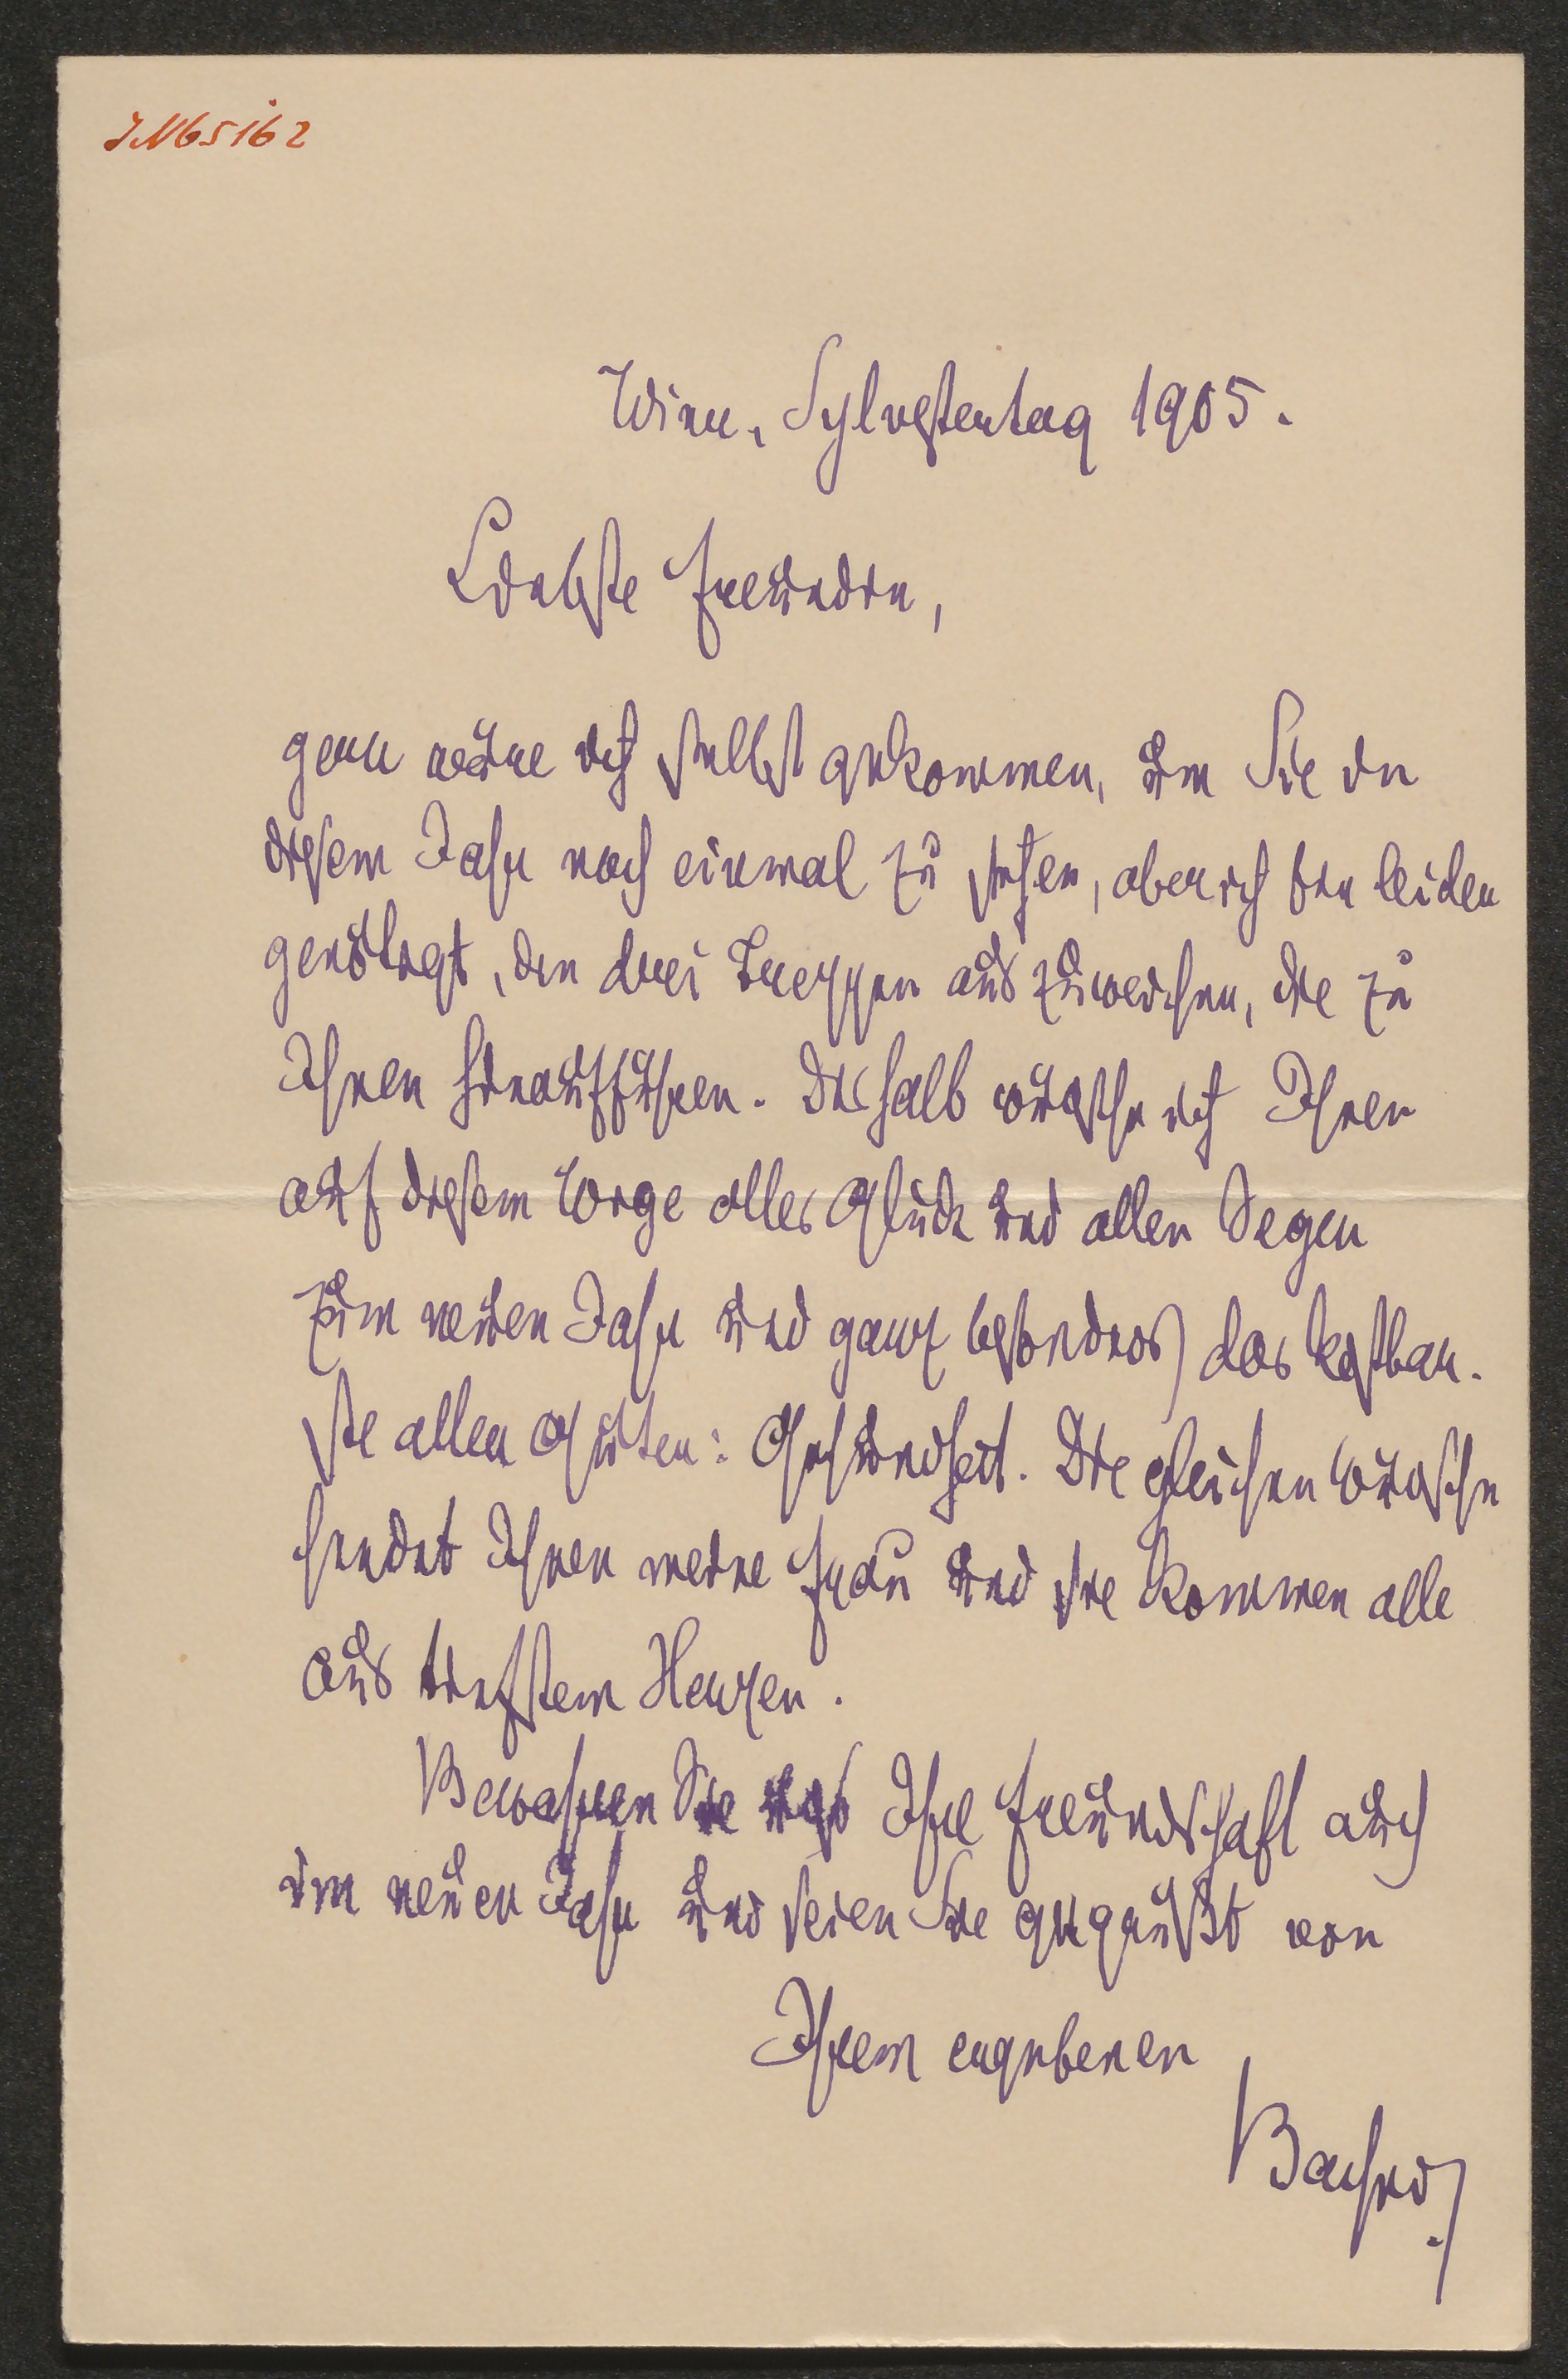 IN65162
Wien, Sylvestertag 1905.
Liebste Freundin,
gern wäre ich selbst gekommen, um Sie in
diesem Jahr noch einmal zu sehen, aber ich bin leider
genötigt, den drei Treppen auszuweichen, die zu
Ihnen hinaufführen. Deshalb wünsche ich Ihnen
auf diesem Wege alles Glück und allen Segen
zum neuen Jahr und ganz besonders das kostbar-
ste aller Güter: Gesundheit. Die gleichen Wünsche
sendet Ihnen meine Frau und sie kommen alle
aus tiefstem Herzen.
Bewahren Sie uns Ihre Freundschaft auch
im neuen Jahr und seien Sie gegrüßt von
Ihrem ergebenen